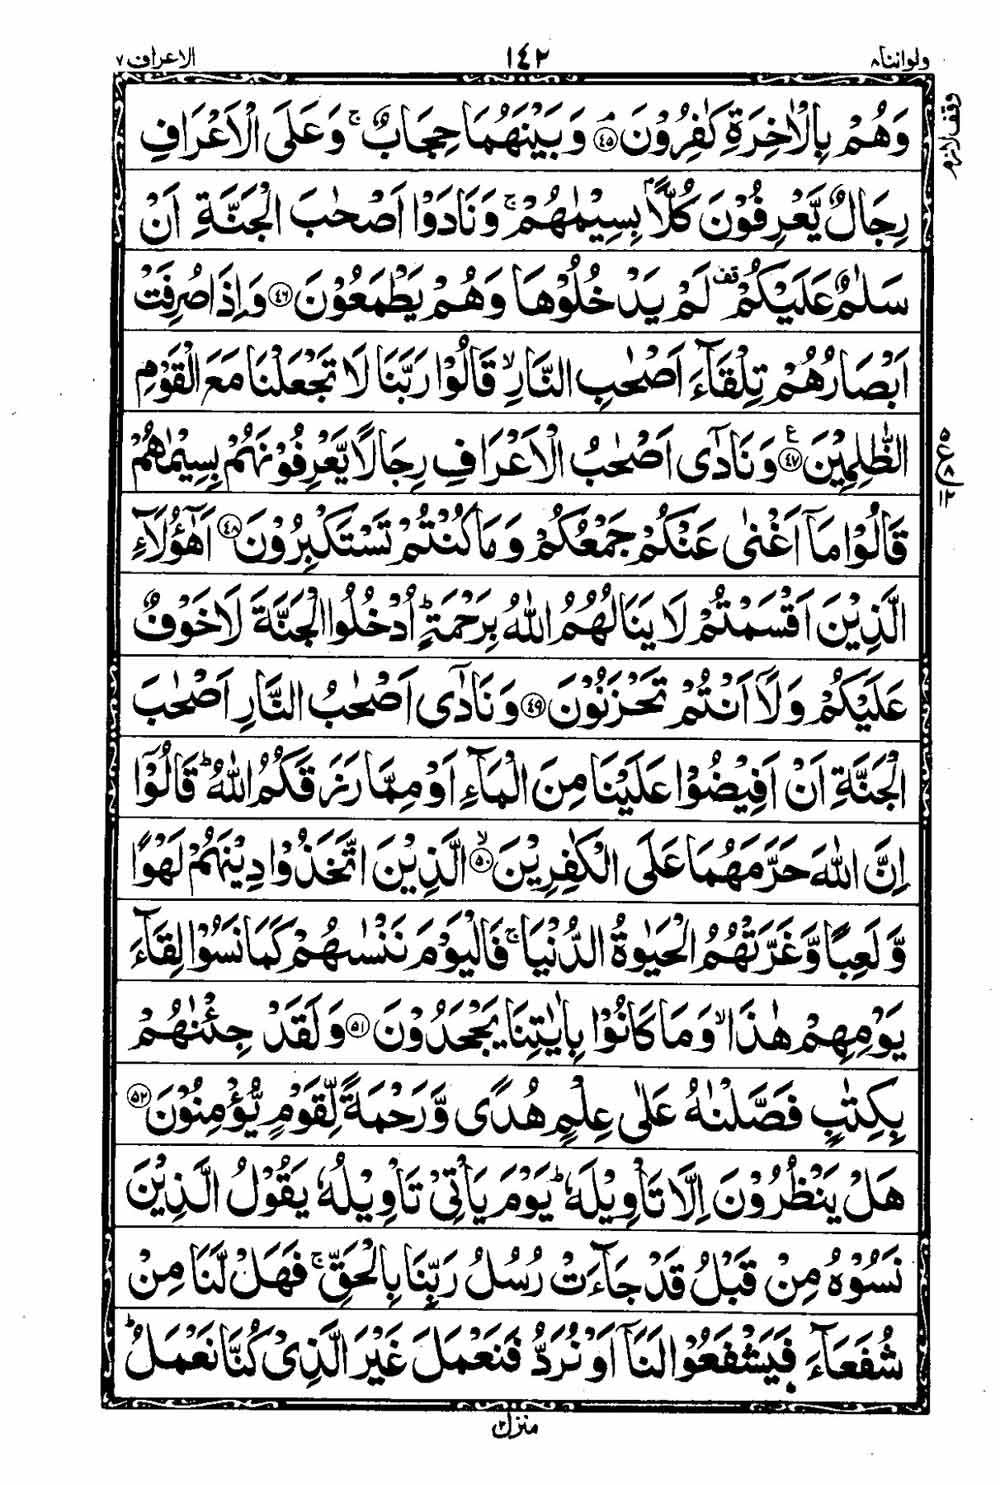 ولواننا ٨ ١٤٢ الاعراف ٧
وَهُمْ بِالْاٰخِرَةِ كٰفِرُوْنَ ۘ ﴿۴۵﴾ وَبَيْنَهُمَا حِجَابٌ ۚ وَعَلَى الْاَعْرَافِ
وقف لازم
رِجَالٌ يَّعْرِفُوْنَ كُلًّاۢ بِسِيْمٰىهُمْ ۚ وَنَادَوْا اَصْحٰبَ الْجَنَّةِ اَنْ
سَلٰمٌ عَلَيْكُمْ ۟ قف لَمْ يَدْخُلُوْهَا وَهُمْ يَطْمَعُوْنَ ﴿۴۶﴾ وَاِذَا صُرِفَتْ
اَبْصَارُهُمْ تِلْقَآءَ اَصْحٰبِ النَّارِ ۙ قَالُوْا رَبَّنَا لَا تَجْعَلْنَا مَعَ الْقَوْمِ
الظّٰلِمِيْنَ ﴿۴۷﴾ ع وَنَادٰٓى اَصْحٰبُ الْاَعْرَافِ رِجَالًا يَّعْرِفُوْنَهُمْ بِسِيْمٰىهُمْ
۵ ع ٨ ١٢
قَالُوْا مَآ اَغْنٰى عَنْكُمْ جَمْعُكُمْ وَمَا كُنْتُمْ تَسْتَكْبِرُوْنَ ﴿۴۸﴾ اَهٰٓؤُلَآءِ
الَّذِيْنَ اَقْسَمْتُمْ لَا يَنَالُهُمُ اللّٰهُ بِرَحْمَةٍ ؕ اُدْخُلُوا الْجَنَّةَ لَا خَوْفٌ
عَلَيْكُمْ وَلَآ اَنْتُمْ تَحْزَنُوْنَ ﴿۴۹﴾ وَنَادٰٓى اَصْحٰبُ النَّارِ اَصْحٰبَ
الْجَنَّةِ اَنْ اَفِيْضُوْا عَلَيْنَا مِنَ الْمَآءِ اَوْ مِمَّا رَزَقَكُمُ اللّٰهُ ؕ قَالُوْٓا
اِنَّ اللّٰهَ حَرَّمَهُمَا عَلَى الْكٰفِرِيْنَ ۙ ﴿۵۰﴾ الَّذِيْنَ اتَّخَذُوْا دِيْنَهُمْ لَهْوًا
وَّلَعِبًا وَّغَرَّتْهُمُ الْحَيٰوةُ الدُّنْيَا ۚ فَالْيَوْمَ نَنْسٰىهُمْ كَمَا نَسُوْا لِقَآءَ
يَوْمِهِمْ هٰذَا ۙ وَمَا كَانُوْا بِاٰيٰتِنَا يَجْحَدُوْنَ ﴿۵۱﴾ وَلَقَدْ جِئْنٰهُمْ
بِكِتٰبٍ فَصَّلْنٰهُ عَلٰى عِلْمٍ هُدًى وَّرَحْمَةً لِّقَوْمٍ يُّؤْمِنُوْنَ ﴿۵۲﴾
هَلْ يَنْظُرُوْنَ اِلَّا تَاْوِيْلَهٗ ؕ يَوْمَ يَاْتِيْ تَاْوِيْلُهٗ يَقُوْلُ الَّذِيْنَ
نَسُوْهُ مِنْ قَبْلُ قَدْ جَآءَتْ رُسُلُ رَبِّنَا بِالْحَقِّ ۚ فَهَلْ لَّنَا مِنْ
شُفَعَآءَ فَيَشْفَعُوْا لَنَآ اَوْ نُرَدُّ فَنَعْمَلَ غَيْرَ الَّذِيْ كُنَّا نَعْمَلُ ؕ
منزل ٢